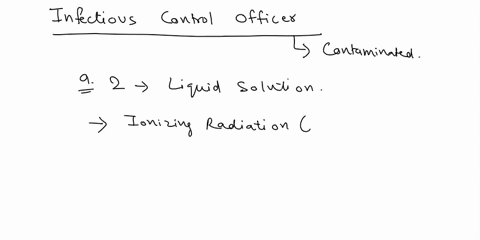 Infectious Control Officer
↳ Contaminated.
a. 2 → Liquid Solution.
→ Ionizing Radiation (